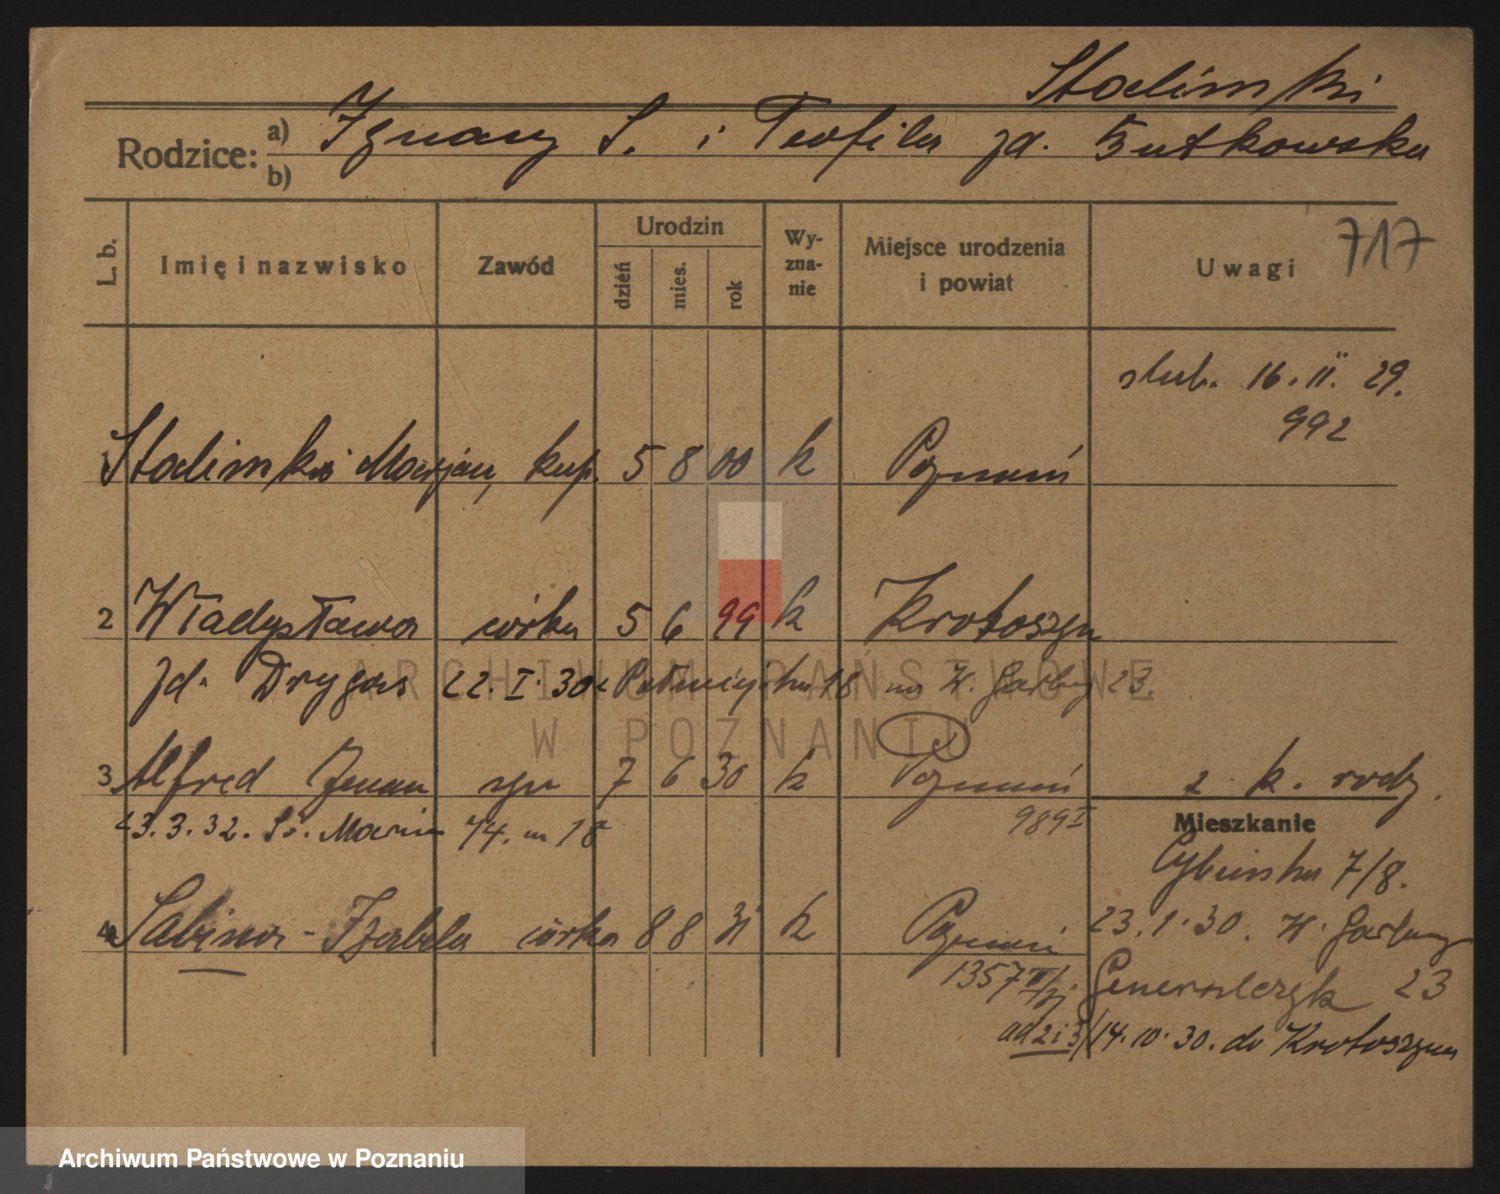 Stalinski
Rodzice: a) Ignacy S. i Teofila zd. Gutkowska
b)
L. b. Imię i nazwisko Zawód Urodzin dzień mies. rok Wy-zna-nie Miejsce urodzenia i powiat Uwagi 717
ślub. 16. II. 29.
992
1 Stalinski Marjan, kup. 5 8 00 k Poznań
2 Władysława córka 5 6 99 k Krotoszyn
zd. Drygas 22. I. 30. 18 na W. Garbary 23.
3 Alfred syn 7 6 30 k Poznań 2 k. rodz.
23. 3. 32. Św. Marcin 74. m 18 989 I
Mieszkanie
Cybińska 7/8.
4 Sabina - Izabela córka 8 8 31 k Poznań 23. 1. 30. W. Garbary
1357 II/31 23
ad 2 i 3/14. 10. 30. do Krotoszyna
ARCHIWUM PAŃSTWOWE
W POZNANIU
Archiwum Państwowe w Poznaniu